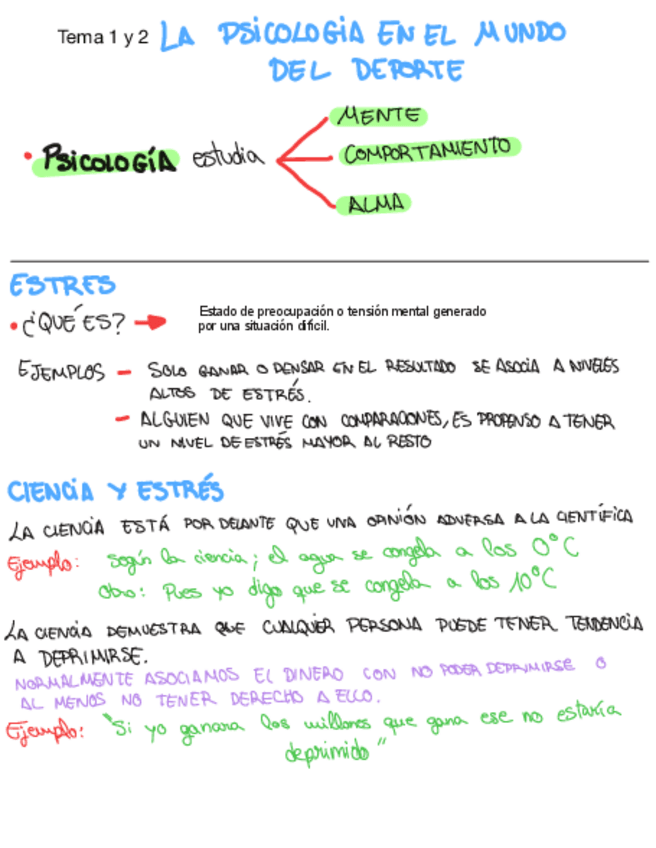 Tema 1 y 2 LA PSICOLOGÍA EN EL MUNDO
DEL DEPORTE
MENTE
• PSICOLOGÍA estudia
COMPORTAMIENTO
ALMA
ESTRES
• ¿QUÉ ES?
Estado de preocupación o tensión mental generado
por una situación difícil.
EJEMPLOS - SOLO GANAR O PENSAR EN EL RESULTADO SE ASOCIA A NIVELES
ALTOS DE ESTRÉS.
- ALGUIEN QUE VIVE CON COMPARACIONES, ES PROPENSO A TENER
UN NIVEL DE ESTRÉS MAYOR AL RESTO
CIENCIA Y ESTRÉS
LA CIENCIA ESTÁ POR DELANTE QUE UNA OPINIÓN ADVERSA A LA CIENTÍFICA
Ejemplo: Según la ciencia; el agua se congela a los 0°C
Otro: Pues yo digo que se congela a los 10°C
LA CIENCIA DEMUESTRA QUE CUALQUIER PERSONA PUEDE TENER TENDENCIA
A DEPRIMIRSE.
NORMALMENTE ASOCIAMOS EL DINERO CON NO PODER DEPRIMIRSE O
AL MENOS NO TENER DERECHO A ELLO.
Ejemplo: "Si yo ganara los millones que gana ese no estaría
deprimido"